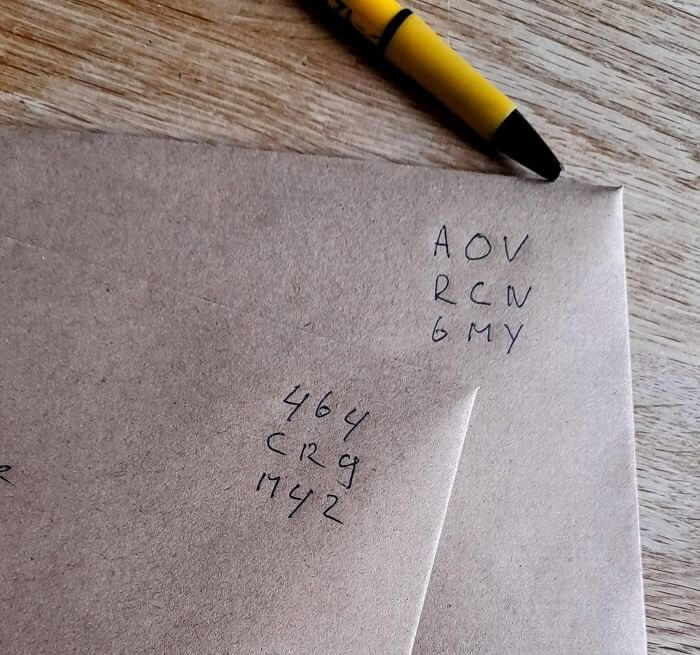 AOV
RCN
6MY
464
CR9
M42